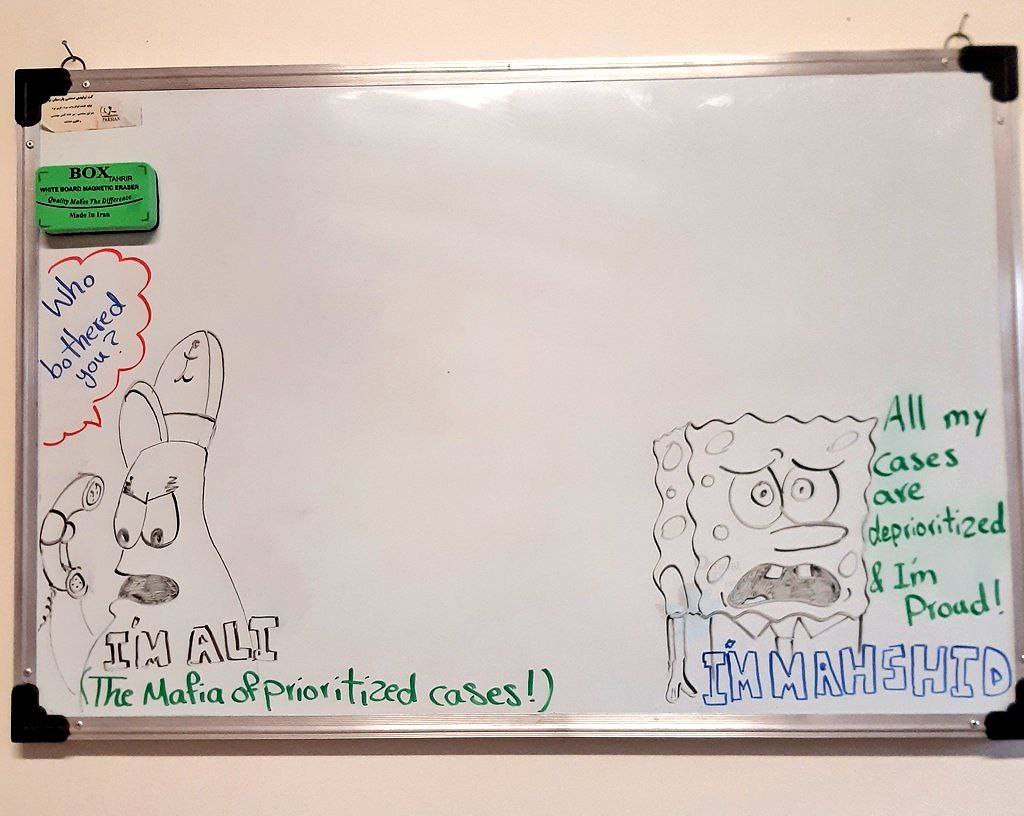 PARSIAN
BOX
TAHRIR
WHITE BOARD MAGNETIC ERASER
Quality Makes The Difference
Made in Iran
Who
bothered
you?
I'M ALI
(The Mafia of prioritized cases!)
All my
cases
are
deprioritized
& I'm
Proud!
I'M MAHSHID